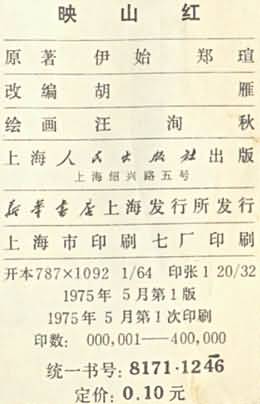 映山红
原著 伊始 郑瑄
改编 胡雁
绘画 汪洵秋
上海人民出版社出版
上海绍兴路五号
新华书店上海发行所发行
上海市印刷七厂印刷
开本787×1092 1/64 印张1 20/32
1975年5月第1版
1975年5月第1次印刷
印数：000,001——400,000
统一书号：8171·1246
定价：0.10元